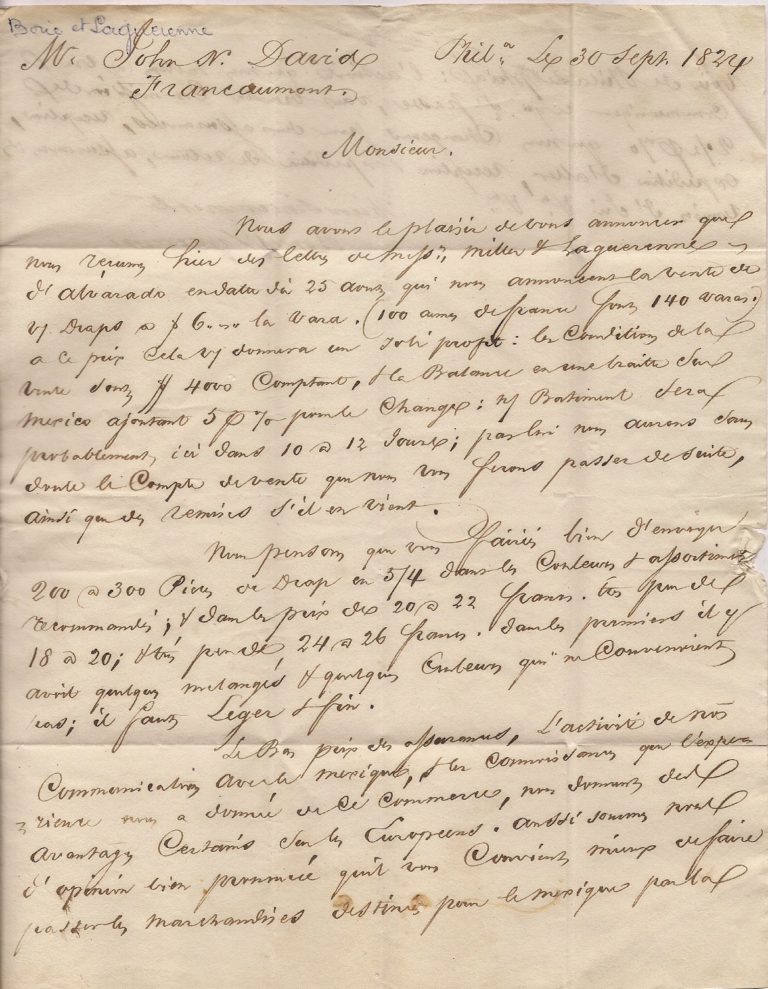 Borie et Laguerenne
Mr. John N. David Phila. Le 30 Sept. 1824
Francaumont.
Monsieur.
Nous avons le plaisir de vous annoncer que
nous reçumes hier des lettres de Messrs. Miller & Laguerenne
d'alvarado en date du 25 aout, qui nous annoncent la vente de
vs. Draps a $ 6 la vara. (100 aunes de france font 140 varas.)
a ce prix cela vs. donnera un joli profit: les Conditions de la
vente sont $ 4000 Comptant, & la Balance en une traite sur
Mexico ajoutant 5 p % pour le Change: Batiment sera
probablement ici dans 10 a 12 Jours; par lui nous aurons sans
doute le Compte de vente que nous vous ferons passer de suite,
ainsi que des remises s'il en vient.
Nous pensons que vous fairiés bien d'envoyer
200 a 300 Pièces de Drap en 5/4 dans les Couleurs & assortimens
recommandés; & dans les prix de 20 a 22 francs. très peu de
18 a 20; & très peu de 24 a 26 francs. dans les premiers il y
avait quelques melangés & quelques Couleurs qui ne Convenoient
pas; il faut Leger & fin.
Le Bas prix des assurances, L'activité de nos
Communications avec le mexique, & les Connoissances que l'expe-
rience nous a donné de Ce Commerce, nous donnent des
avantages Certains sur les Européens. aussi sommes nous
d'opinion bien prononcé qu'il vous Convient mieux de faire
passer les marchandises destinées pour le mexique par la